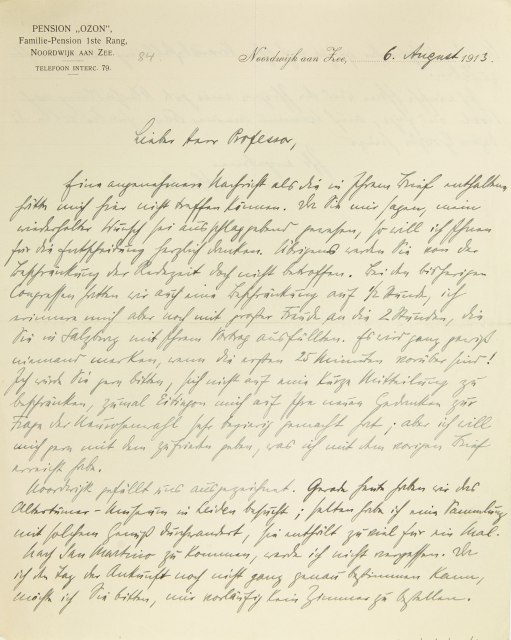 PENSION „OZON",
Familie-Pension 1ste Rang,
NOORDWIJK AAN ZEE.
TELEFOON INTERC. 79.
84
Noordwijk aan Zee, 6. August 1913.
Lieber Herr Professor,
Eine angenehmere Nachricht als die in Ihrem Brief enthaltene
hätte mich hier nicht treffen können. Da Sie mir sagen, mein
wiederholter Wunsch sei ausschlaggebend gewesen, so will ich Ihnen
für die Entscheidung herzlich danken. Übrigens werden Sie von der
Beschränkung der Redezeit doch nicht betroffen. Bei den bisherigen
Congressen hatten wir auch eine Beschränkung auf ½ Stunde, ich
erinnere mich aber noch mit großer Freude an die 2 Stunden, die
Sie in Salzburg mit Ihrem Vortrag ausfüllten. Es wird ganz gewiß
niemand merken, wenn die ersten 25 Minuten vorüber sind!
Ich würde Sie gern bitten, sich nicht auf eine kurze Mitteilung zu
beschränken, zumal Eitingon mich auf Ihre neuen Gedanken zur
Frage der Neurosenwahl sehr begierig gemacht hat; aber ich will
mich gern mit dem zufrieden geben, was ich mit dem vorigen Brief
erreicht habe.
Noordwijk gefällt uns ausgezeichnet. Gerade heute haben wir das
Altertümer-Museum in Leiden besucht; selten habe ich eine Sammlung
mit solchem Genuß durchwandert, sie enthält zu viel für ein Mal.
Nach San Martino zu kommen, werde ich nicht vergessen. Da
ich den Tag der Ankunft noch nicht ganz genau bestimmen kann,
möchte ich Sie bitten, mir vorläufig kein Zimmer zu bestellen.